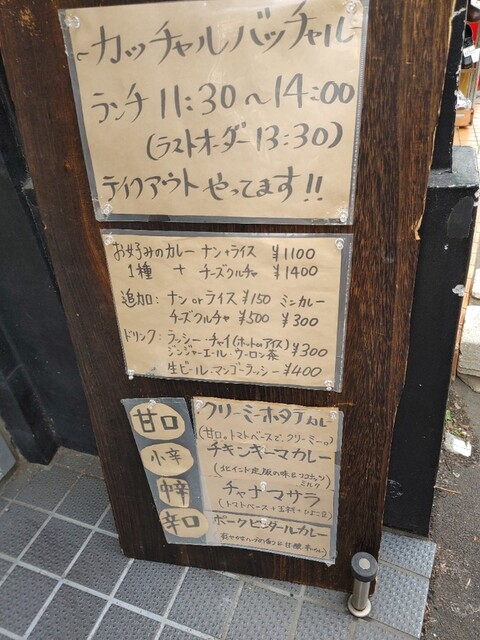 ~カッチャルバッチャル~
ランチ 11:30～14:00
(ラストオーダー 13:30)
テイクアウト やってます!!
お好みのカレー ナン+ライス ¥1100
1種 + チーズクルチャ ¥1400
追加: ナン or ライス ¥150 ミニカレー
チーズクルチャ ¥500 ¥300
ドリンク: ラッシー・チャイ(ホット or アイス)
ジンジャーエール・ウーロン茶 ¥300
生ビール・マンゴーラッシー ¥400
甘口 クリーミーホタテカレー
(甘口。トマトベースで、クリーミー。)
小辛 チキンキーマカレー
(北インド定版の味&ココナッツミルク)
中辛 チャナマサラ
(トマトベース+玉ねぎ+ひよこ豆)
辛口 ポークビンダールカレー